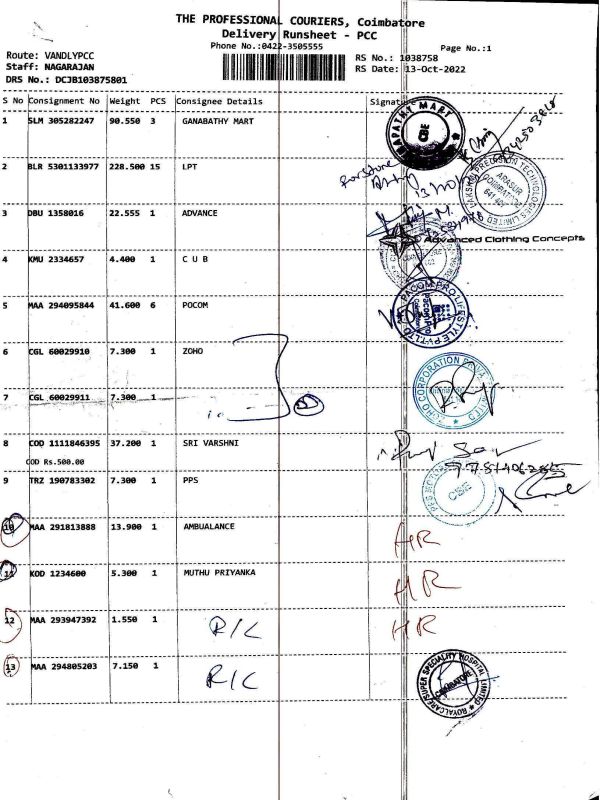 THE PROFESSIONAL COURIERS, Coimbatore
Delivery Runsheet - PCC
Phone No.:0422-3505555
Page No.:1
Route: VANDLYPCC
RS No.: 1038758
Staff: NAGARAJAN
RS Date: 13-Oct-2022
DRS No.: DCJB103875801
S No Consignment No Weight PCS Consignee Details Signature
1 SLM 305282247 90.550 3 GANABATHY MART
2 BLR 5301133977 228.500 15 LPT
3 DBU 1358016 22.555 1 ADVANCE
Advanced Clothing Concepts
4 KMU 2334657 4.400 1 C U B
5 MAA 294095844 41.600 6 POCOM
6 CGL 60029910 7.300 1 ZOHO
7 CGL 60029911 7.300 1
8 COD 1111846395 37.200 1 SRI VARSHNI
COD Rs.500.00
9 TRZ 190783302 7.300 1 PPS
CBE
10 MAA 291813888 13.900 1 AMBUALANCE HR
11 KOD 1234600 5.300 1 MUTHU PRIYANKA HR
12 MAA 293947392 1.550 1 R/C HR
13 MAA 294805203 7.150 1 R/C
ROYALCARE SUPER SPECIALITY HOSPITAL LIMITED
COIMBATORE